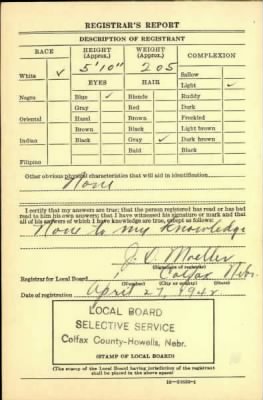 REGISTRAR'S REPORT
DESCRIPTION OF REGISTRANT
RACE HEIGHT (Approx.) WEIGHT (Approx.) COMPLEXION
5'10" 205
White ✓ Sallow
EYES HAIR Light ✓
Negro Blue ✓ Blonde Ruddy
Gray Red Dark
Oriental Hazel Brown Freckled
Brown Black Light brown
Indian Black Gray ✓ Dark brown
Bald Black
Filipino
Other obvious physical characteristics that will aid in identification
None
I certify that my answers are true; that the person registered has read or has had
read to him his own answers; that I have witnessed his signature or mark and that
all of his answers of which I have knowledge are true, except as follows:
None to my knowledge
J. V. Moeller
(Signature of registrar)
Registrar for Local Board Colfax Nebr.
(Number) (City or county) (State)
Date of registration April 27, 1942
LOCAL BOARD
SELECTIVE SERVICE
Colfax County-Howells, Nebr.
(STAMP OF LOCAL BOARD)
(The stamp of the Local Board having jurisdiction of the registrant
shall be placed in the above space)